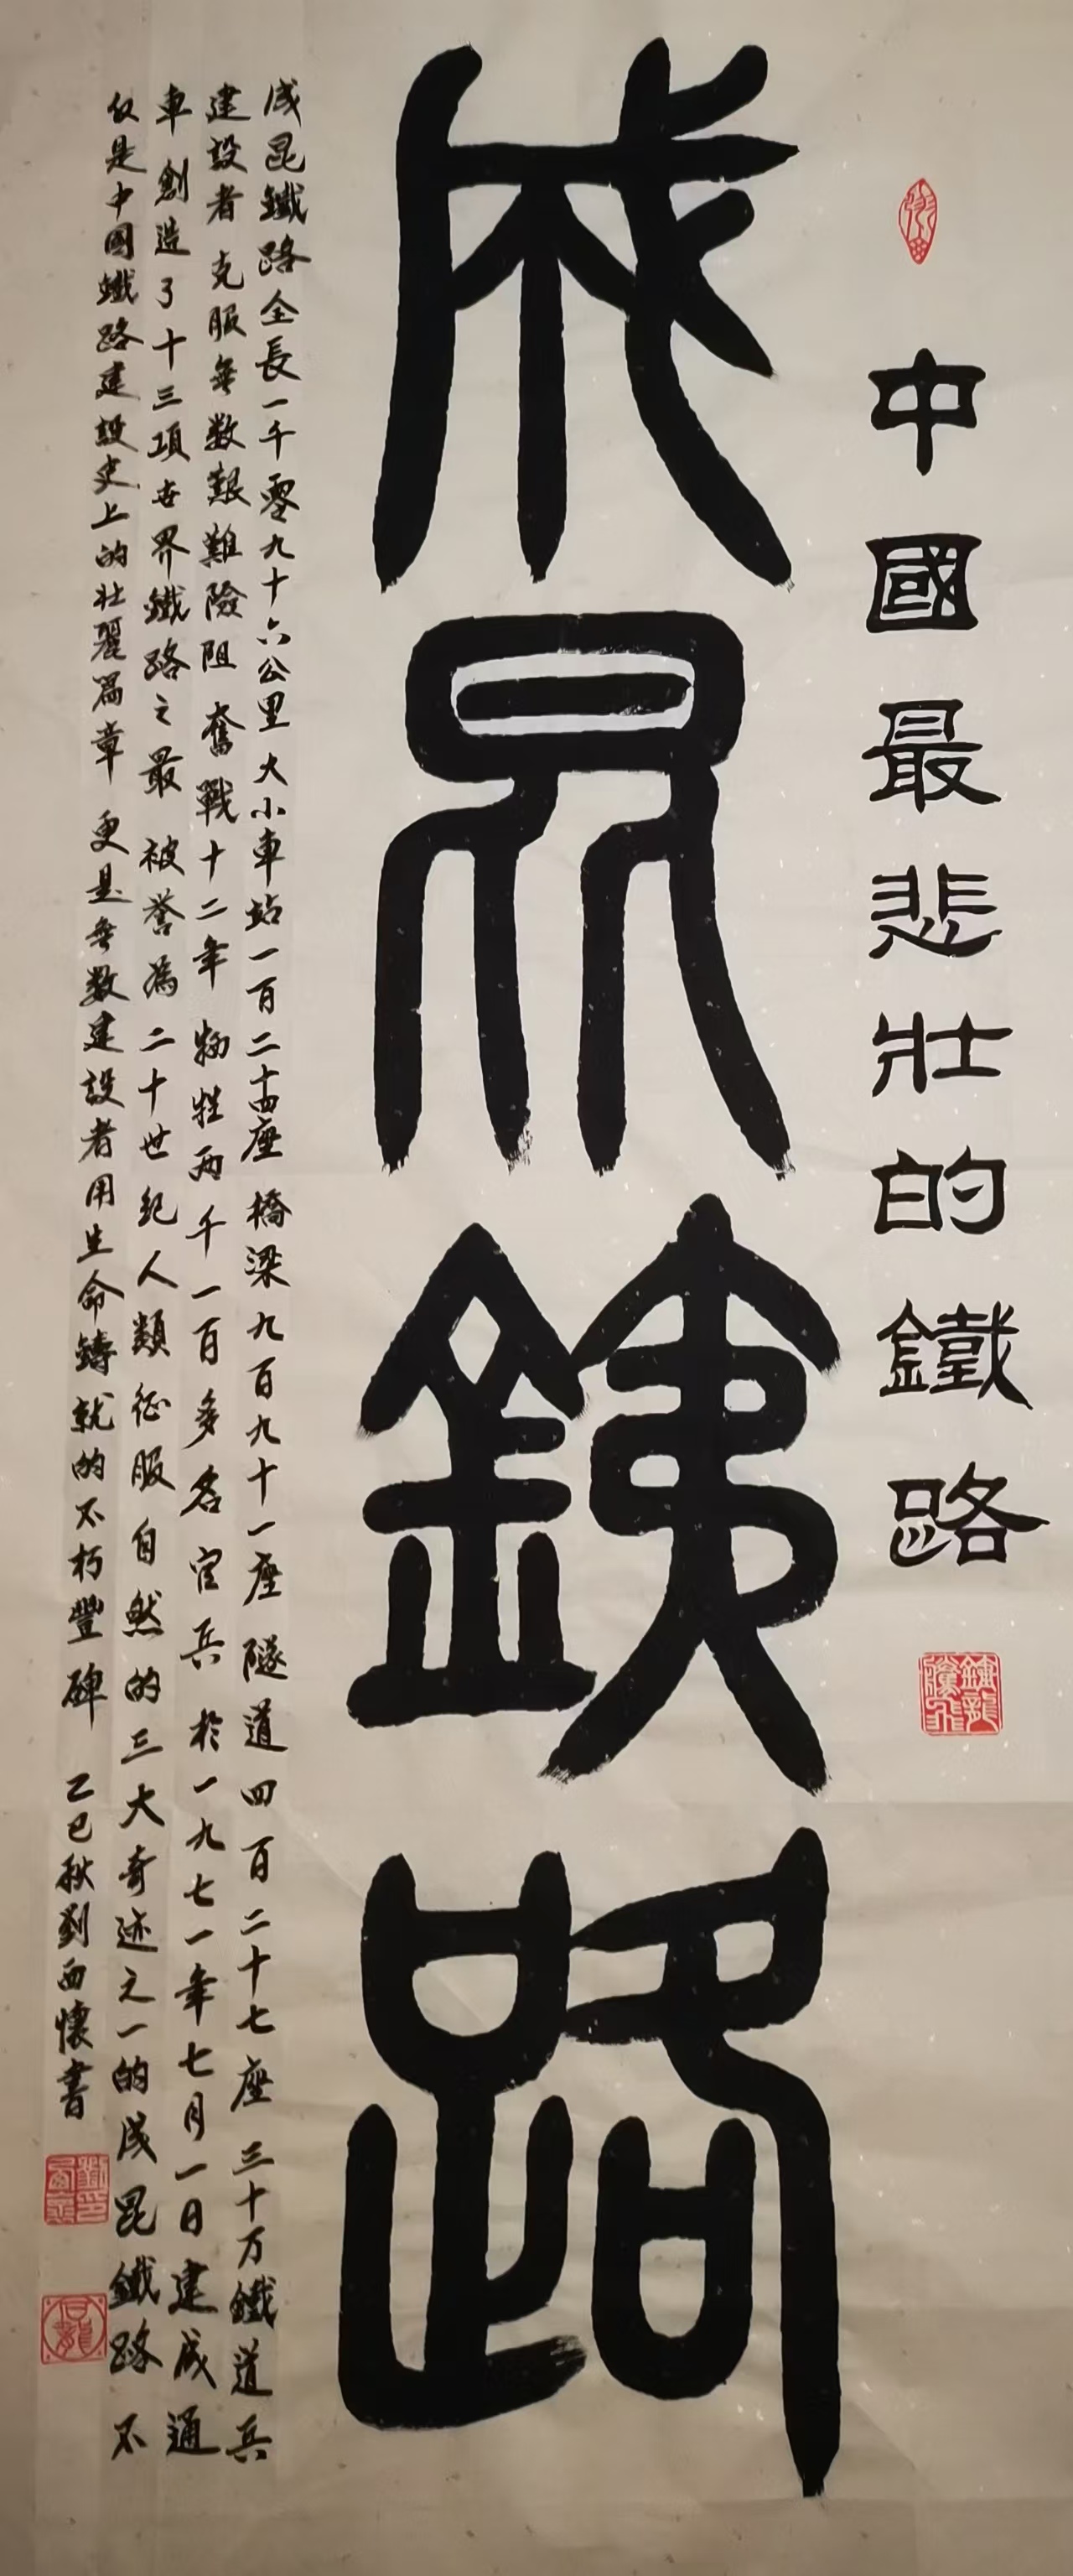 中國最悲壯的鐵路
成昆鐵路
成昆鐵路全長一千零九十六公里大小車站一百二十四座橋梁九百九十一座隧道四百二十七座三十万鐵道兵
建設者克服無数艱難險阻奮戰十二年犧牲两千一百多名官兵於一九七一年七月一日建成通
車創造了十三項世界鐵路之最被誉為二十世纪人類征服自然的三大奇迹之一的成昆鐵路不
仅是中國鐵路建設史上的壯麗篇章更是無数建設者用生命鑄就的不朽豐碑乙巳秋劉西懷書